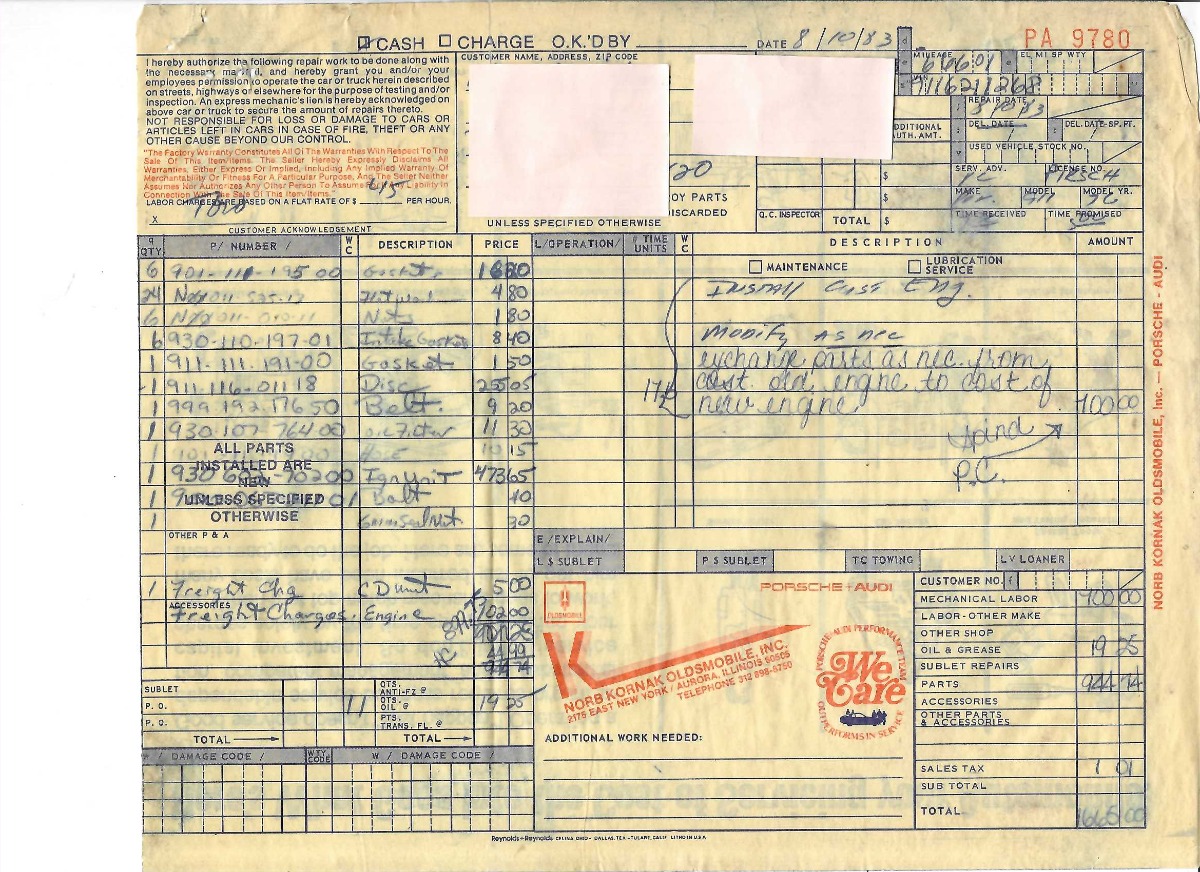 CASH CHARGE O.K.'D BY DATE 8/10/83 PA 9780
I hereby authorize the following repair work to be done along with
the necessary and hereby grant you and/or your
employees permission to operate the car or truck herein described
on streets, highways or elsewhere for the purpose of testing and/or
inspection. An express mechanic's lien is hereby acknowledged on
above car or truck to secure the amount of repairs thereto.
NOT RESPONSIBLE FOR LOSS OR DAMAGE TO CARS OR
ARTICLES LEFT IN CARS IN CASE OF FIRE, THEFT OR ANY
OTHER CAUSE BEYOND OUR CONTROL.
"The Factory Warranty Constitutes All Of The Warranties With Respect To The
Sale Of This Item/Items. The Seller Hereby Expressly Disclaims All
Warranties, Either Express Or Implied, Including Any Implied Warranty Of
Merchantability Or Fitness For A Particular Purpose, And The Seller Neither
Assumes Nor Authorizes Any Other Person To Assume For It Any Liability In
Connection With The Sale Of This Item/Items."
LABOR CHARGES ARE BASED ON A FLAT RATE OF $ PER HOUR.
X
CUSTOMER ACKNOWLEDGEMENT
CUSTOMER NAME, ADDRESS, ZIP CODE
20
OY PARTS
ISCARDED
UNLESS SPECIFIED OTHERWISE
MILEAGE 61601 EL MI SP WTY
9116211268
REPAIR DATE
DEL. DATE DEL. DATE-SP. FT.
DDITIONAL
UTH. AMT.
USED VEHICLE STOCK NO.
SERV. ADV. LICENSE NO.
PC
MAKE MODEL MODEL YR.
Por 911 76
Q.C. INSPECTOR TOTAL $ TIME RECEIVED TIME PROMISED
500
QTY. P/ NUMBER / W C DESCRIPTION PRICE L/OPERATION/ TIME UNITS W C DESCRIPTION AMOUNT
MAINTENANCE LUBRICATION SERVICE
6 901-111-195 00 Gaskets
24 4 80
6 Nuts 1 80
6 930-110-197-01 Intake Gaskets 8 40
1 911-111-191-00 Gasket 1 50
1 911-116-011 18 Disc 255 05
1 999-192-176 50 Belt. 9 20
1 930-107-764 00 Oil Filter 11 30
1 10 15
1 930 602 702 00 Ign Unit 473 65
1 Bolt 40
1 30
ALL PARTS
INSTALLED ARE
NEW
UNLESS SPECIFIED
OTHERWISE
OTHER P & A
1 Freight Chg CD unit 5 00
ACCESSORIES
Freight Charges. Engine 102 00
44 99
944 74
Install Cust Eng.
Modify as nec
exchange parts as nec. from
cost. old engine to cost of
new engine 700 00
P.C.
E /EXPLAIN/
L $ SUBLET P $ SUBLET TC TOWING LV LOANER
SUBLET
P. O.
P. O.
QTS. ANTI-FZ @
11 QTS. OIL @ 19 25
PTS. TRANS. FL. @
TOTAL TOTAL
/ DAMAGE CODE / WTY. CODE W / DAMAGE CODE /
OLDSMOBILE
PORSCHE+AUDI
K
NORB KORNAK OLDSMOBILE, INC.
2175 EAST NEW YORK / AURORA, ILLINOIS 60505
TELEPHONE 312 898-5750
PORSCHE-AUDI PERFORMANCE TEAM
We Care
OUTPERFORMS IN SERVICE
ADDITIONAL WORK NEEDED:
CUSTOMER NO.
MECHANICAL LABOR 700 00
LABOR-OTHER MAKE
OTHER SHOP
OIL & GREASE 19 25
SUBLET REPAIRS
PARTS 944 74
ACCESSORIES
OTHER PARTS & ACCESSORIES
SALES TAX 1 01
SUB TOTAL
TOTAL 1665 00
NORB KORNAK OLDSMOBILE, Inc. — PORSCHE - AUDI
Reynolds+Reynolds CELINA, OHIO - DALLAS, TEX - TULARE, CALIF. LITHO IN U.S.A.